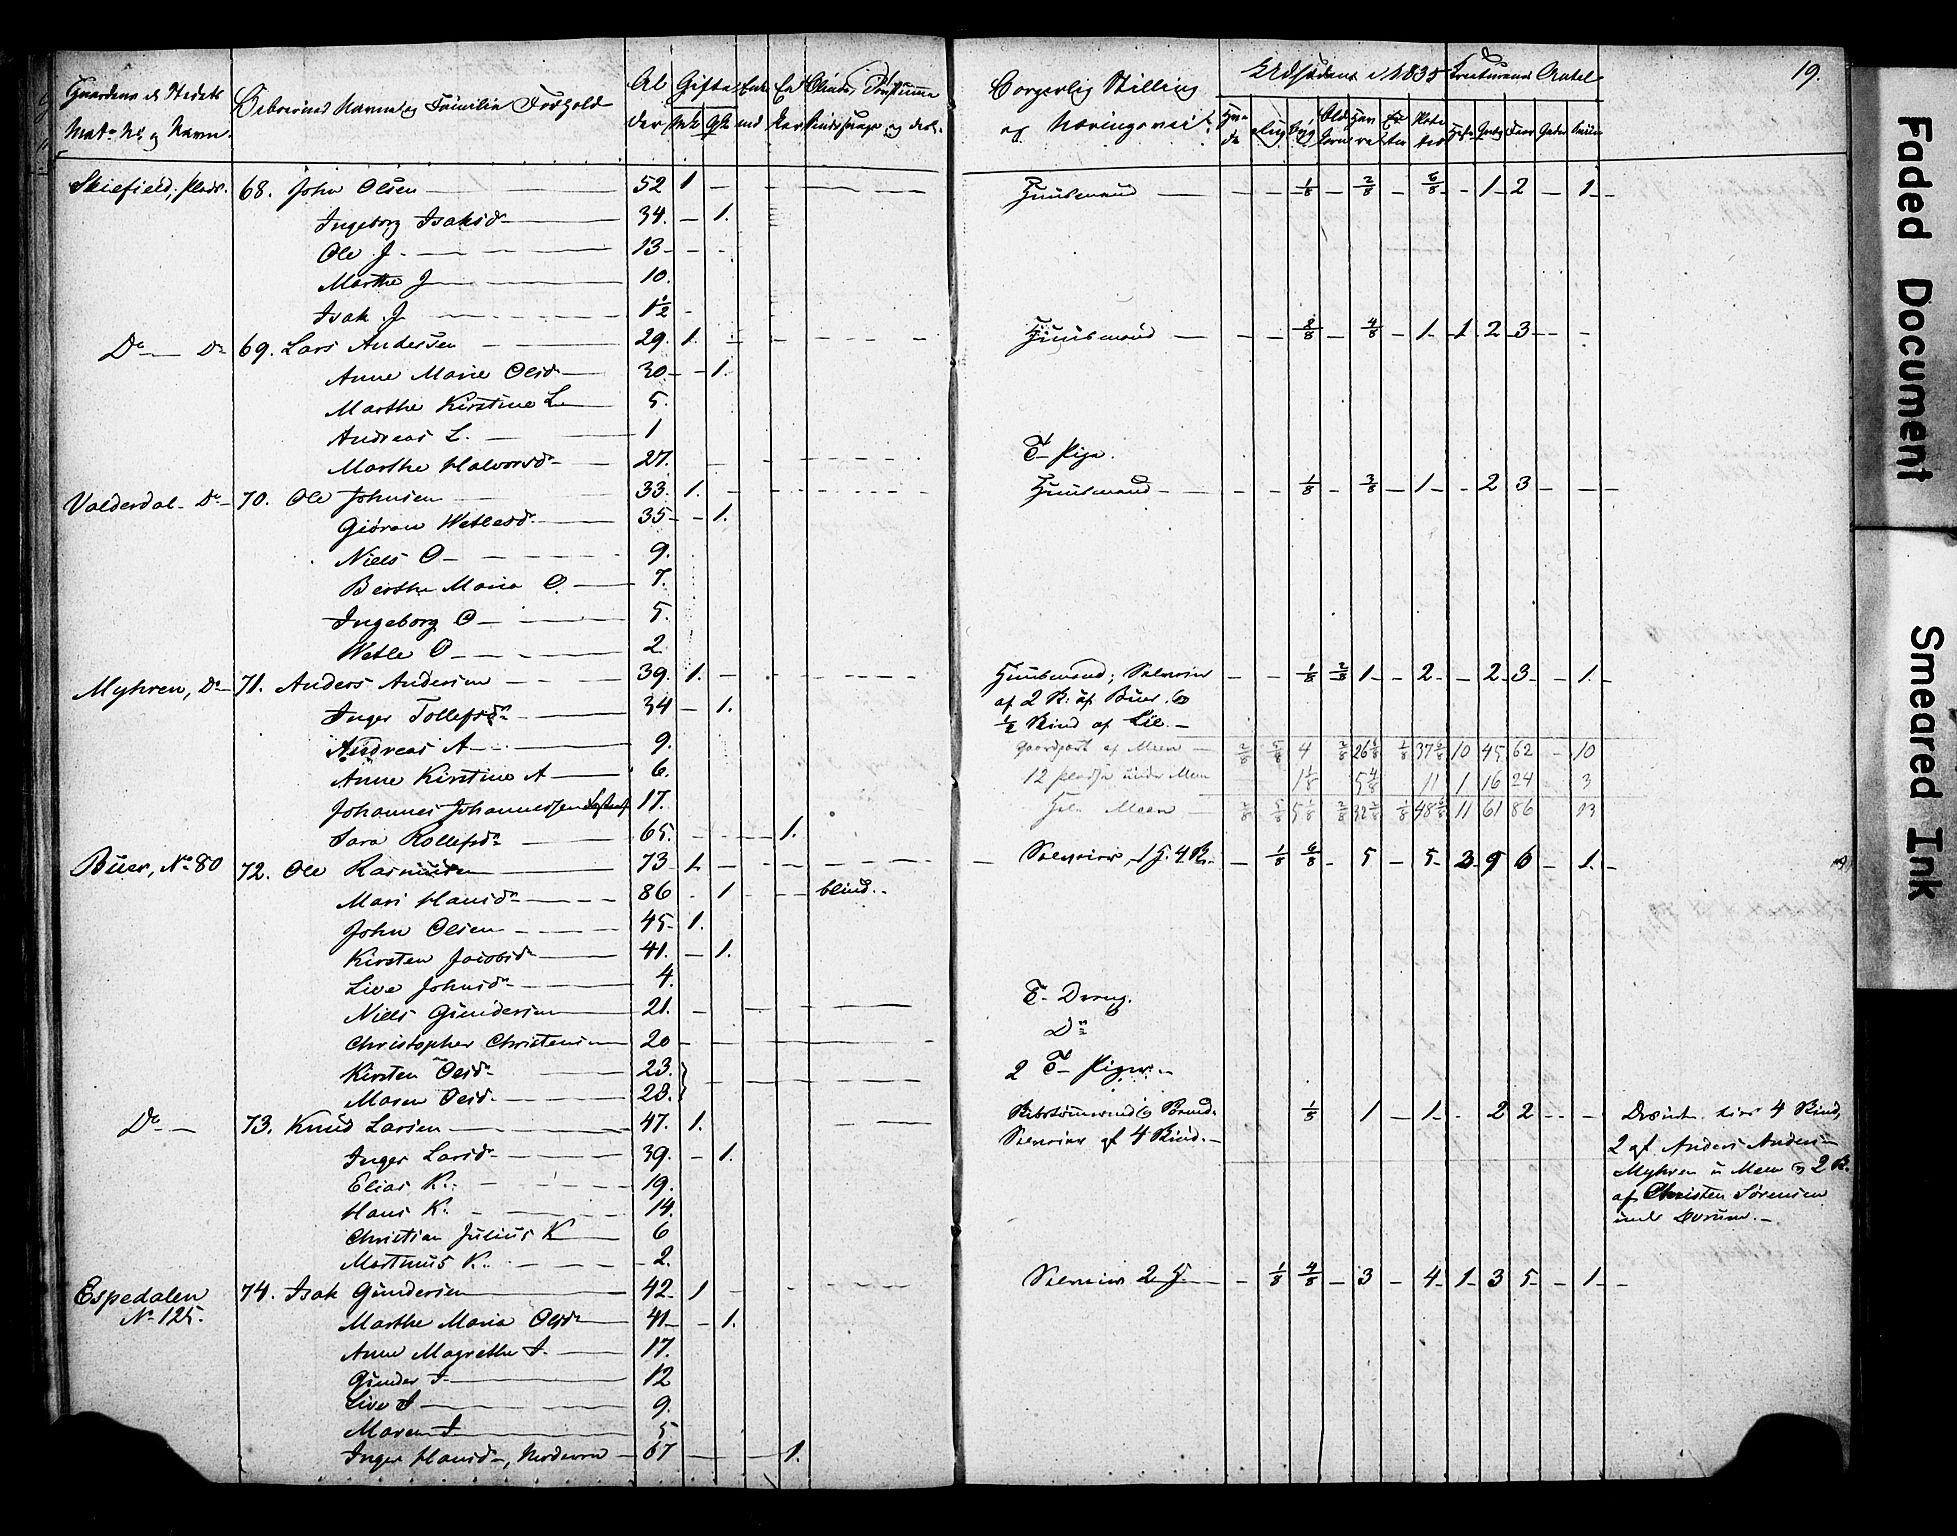 19.
Gaardens og Stedets
Mat. No. og Navn.
Beboernes Navne og Familie Forhold
Al
der
Gifte
Mk
Qk
Enke
md
En
ker
Blinde,
Sindssvage og døve
Borgerlig Stilling
og Næringsvei
Udsæden i 1835
Creaturenes Antal
Hve
de
Rug
Byg
Bld
korn
Hav
re
Er
ter
Pote
ter
Heste
Qvæg
Faar
Geder
Sviin
Skiefield, plads. 68. John Olsen 52 1 Huusmand 1/8 2/8 6/8 1 2 1
Ingeborg Isaksd. 34. 1.
Ole J. 13
Marthe J 10.
Isak J. 1 1/2
Do Do 69. Lars Andersen 29. 1. Huusmand 2/8 4/8 1 1 2 3
Anne Marie Olsd. 30 1.
Marthe Kirstine L. 5.
Andreas L. 1
Marthe Halvorsd. 27. T- Pige.
Valderdal Do 70. Ole Johnsen 33. 1. Huusmand 1/8 3/8 1 2 3
Giøran Wetlesd. 35 1.
Niels O 9.
Berthe Maria O. 7.
Ingeborg O 5.
Wetle O 2.
Myhren, Do 71. Anders Andersen 39. 1. Huusmand; Selveier 1/8 2/8 1 2 2 3 1
Inger Tollefsd. 34 1. af 2 K: af Buer, og
1/2 Skind af Lie.
Andreas A 9. Gaardpart af Meen 2/8 5/8 4 2/8 26 1/8 1/8 37 2/8 10 45 62 10
Anne Kirstine A 6. 12 pladse under Meen 1 1/8 5 4/8 11 1 16 24 3
Johannes Johannessen 17. Meen 2/8 5/8 5 1/8 2/8 1/8 11 61 86
Sara Rollefsd. 65. 1.
Buer, No. 80 72. Ole Rasmussen 73 1. Selveier 1/8 6/8 5 5 3 9 6 1.
Mari Hansd. 86 1 blind.
John Olsen 45 1.
Kirsten Jacobsd. 41. 1.
Live Johnsd. 4.
Niels Gundersen 21. T- Dreng.
Christopher Christensen 20 Do
Kirsten Olsd. 23. 2 T- Piger.
Maren Olsd. 28.
Do 73. Knud Larsen 47. 1. og 1/8 1 1 2 2 4 Skind,
Inger Larsd. 39. 1. Selveier af 4 Skind. 2 af Anders Anders.
Elias K. 19. Myhren u Meen og 2 K.
Hans K. 14. af Christen Sørensen
Christian Julius K 6
Martinus K. 2.
Espedalen 74. Isak Gundersen 42. 1 Selveier 2 H. 1/8 4/8 3 4 1 3 5 1
No. 125. Marthe Maria Olsd. 41 1.
Anne Magrethe I. 17.
Gunder I 12
Live I 9.
Maren I 5
Inger Hansd. 67 1.
Faded Document
Smeared Ink